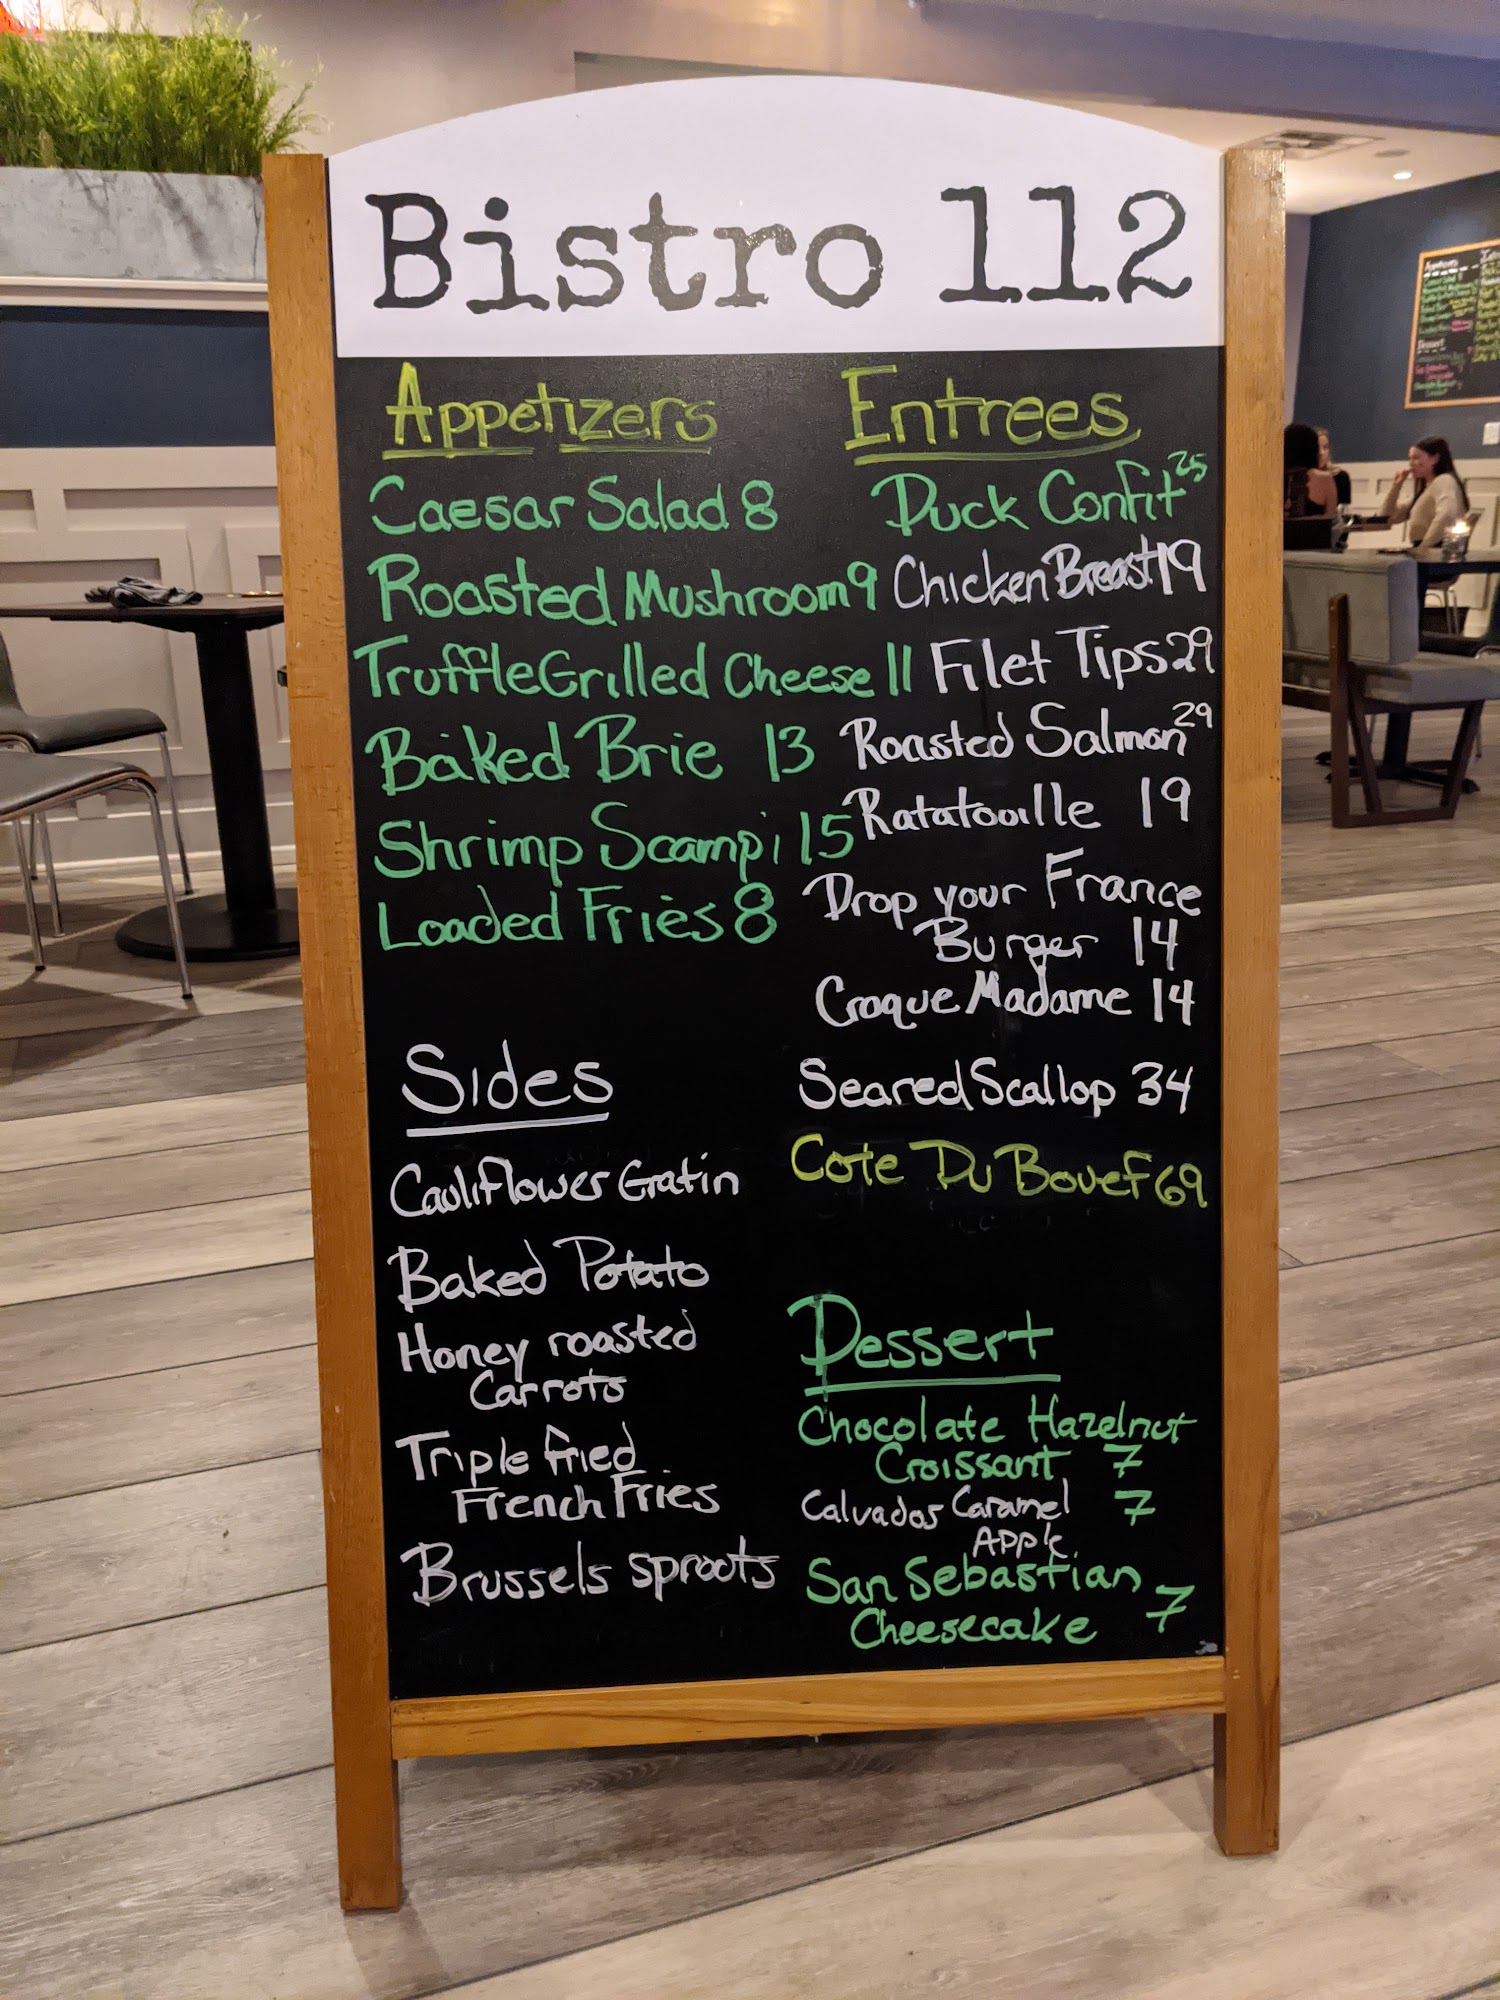 Bistro 112
Appetizers
Caesar Salad 8
Roasted Mushroom 9
Truffle Grilled Cheese 11
Baked Brie 13
Shrimp Scampi 15
Loaded Fries 8
Sides
Cauliflower Gratin
Baked Potato
Honey roasted
Carrots
Triple fried
French Fries
Brussels sproots
Entrees
Duck Confit 25
Chicken Breast 19
Filet Tips 29
Roasted Salmon 29
Ratatouille 19
Drop your France
Burger 14
Croque Madame 14
Seared Scallop 34
Cote Du Bouef 69
Dessert
Chocolate Hazelnut
Croissant 7
Calvados Caramel 7
Apple
San Sebastian
Cheesecake 7
Appetizers
Dessert